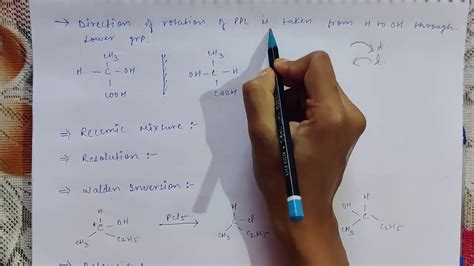 → Direction of rotation of PPL is taken from H to OH through
Lower grp.
CH3 CH3
H - C - OH OH - C - H d
COOH COOH l
⇒ Recemic Mixture :-
⇒ Resolution :-
⇒ Walden Inversion :-
H H H
* C OH PCl5 → C Cl OH C
CH3 C2H5 CH3 C2H5 CH3 C2H5